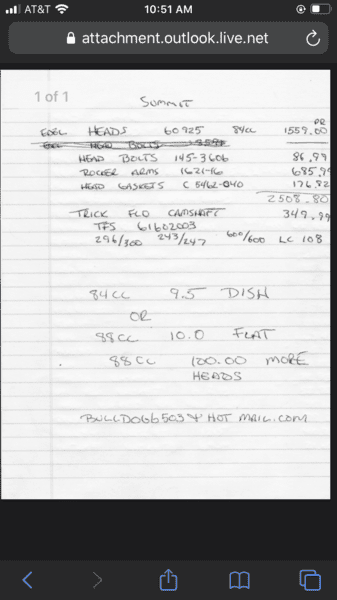 AT&T 10:51 AM
attachment.outlook.live.net
1 of 1
SUMMIT
PR
EDEL HEADS 60925 84CC 1559.00
HEAD BOLTS 145-3606 86.99
ROCKER ARMS 1621-16 685.99
HEAD GASKETS C 5462-040 176.82
2508.80
TRICK FLO CAMSHAFT 349.99
TFS 61602003
296/300 243/247 600/600 LC 108
84CC 9.5 DISH
OR
88CC 10.0 FLAT
88CC 100.00 MORE
HEADS